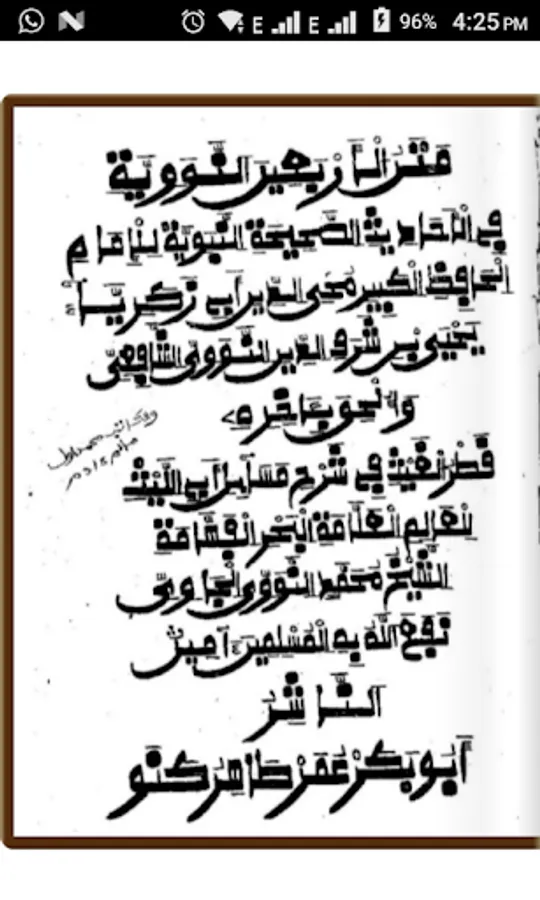 E E 96% 4:25 PM
مَتْنُ الْأَرْبَعِينَ النَّوَوِيَّةِ
فِي الْأَحَادِيثِ الصَّحِيحَةِ النَّبَوِيَّةِ لِلْإِمَامِ
الْحَافِظِ الْكَبِيرِ مُحْيِي الدِّينِ أَبِي زَكَرِيَّاءَ
يَحْيَى بْنِ شَرَفِ الدِّينِ النَّوَوِيِّ الشَّافِعِيِّ
وَالْحَقْ بِآخِرِهِ
قَطْرُ الْغَيْثِ فِي شَرْحِ مَسَآئِلِ أَبِي اللَّيْثِ
لِلْعَالِمِ الْعَلَّامَةِ الْبَحْرِ الْفَهَّامَةِ
الشَّيْخِ مُحَمَّدٍ النَّوَوِيِّ الْجَاوِيِّ
نَفَعَ اللَّهُ بِهِ الْمُسْلِمِينَ آمِينْ
النَّاشِرُ
أَبُو بَكْرْ عُمَرْ طَاهِرْ كَنُو